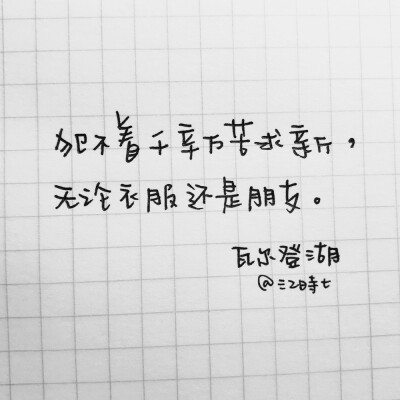 犯不着千辛万苦求新，
无论衣服还是朋友。
瓦尔登湖
@三時七